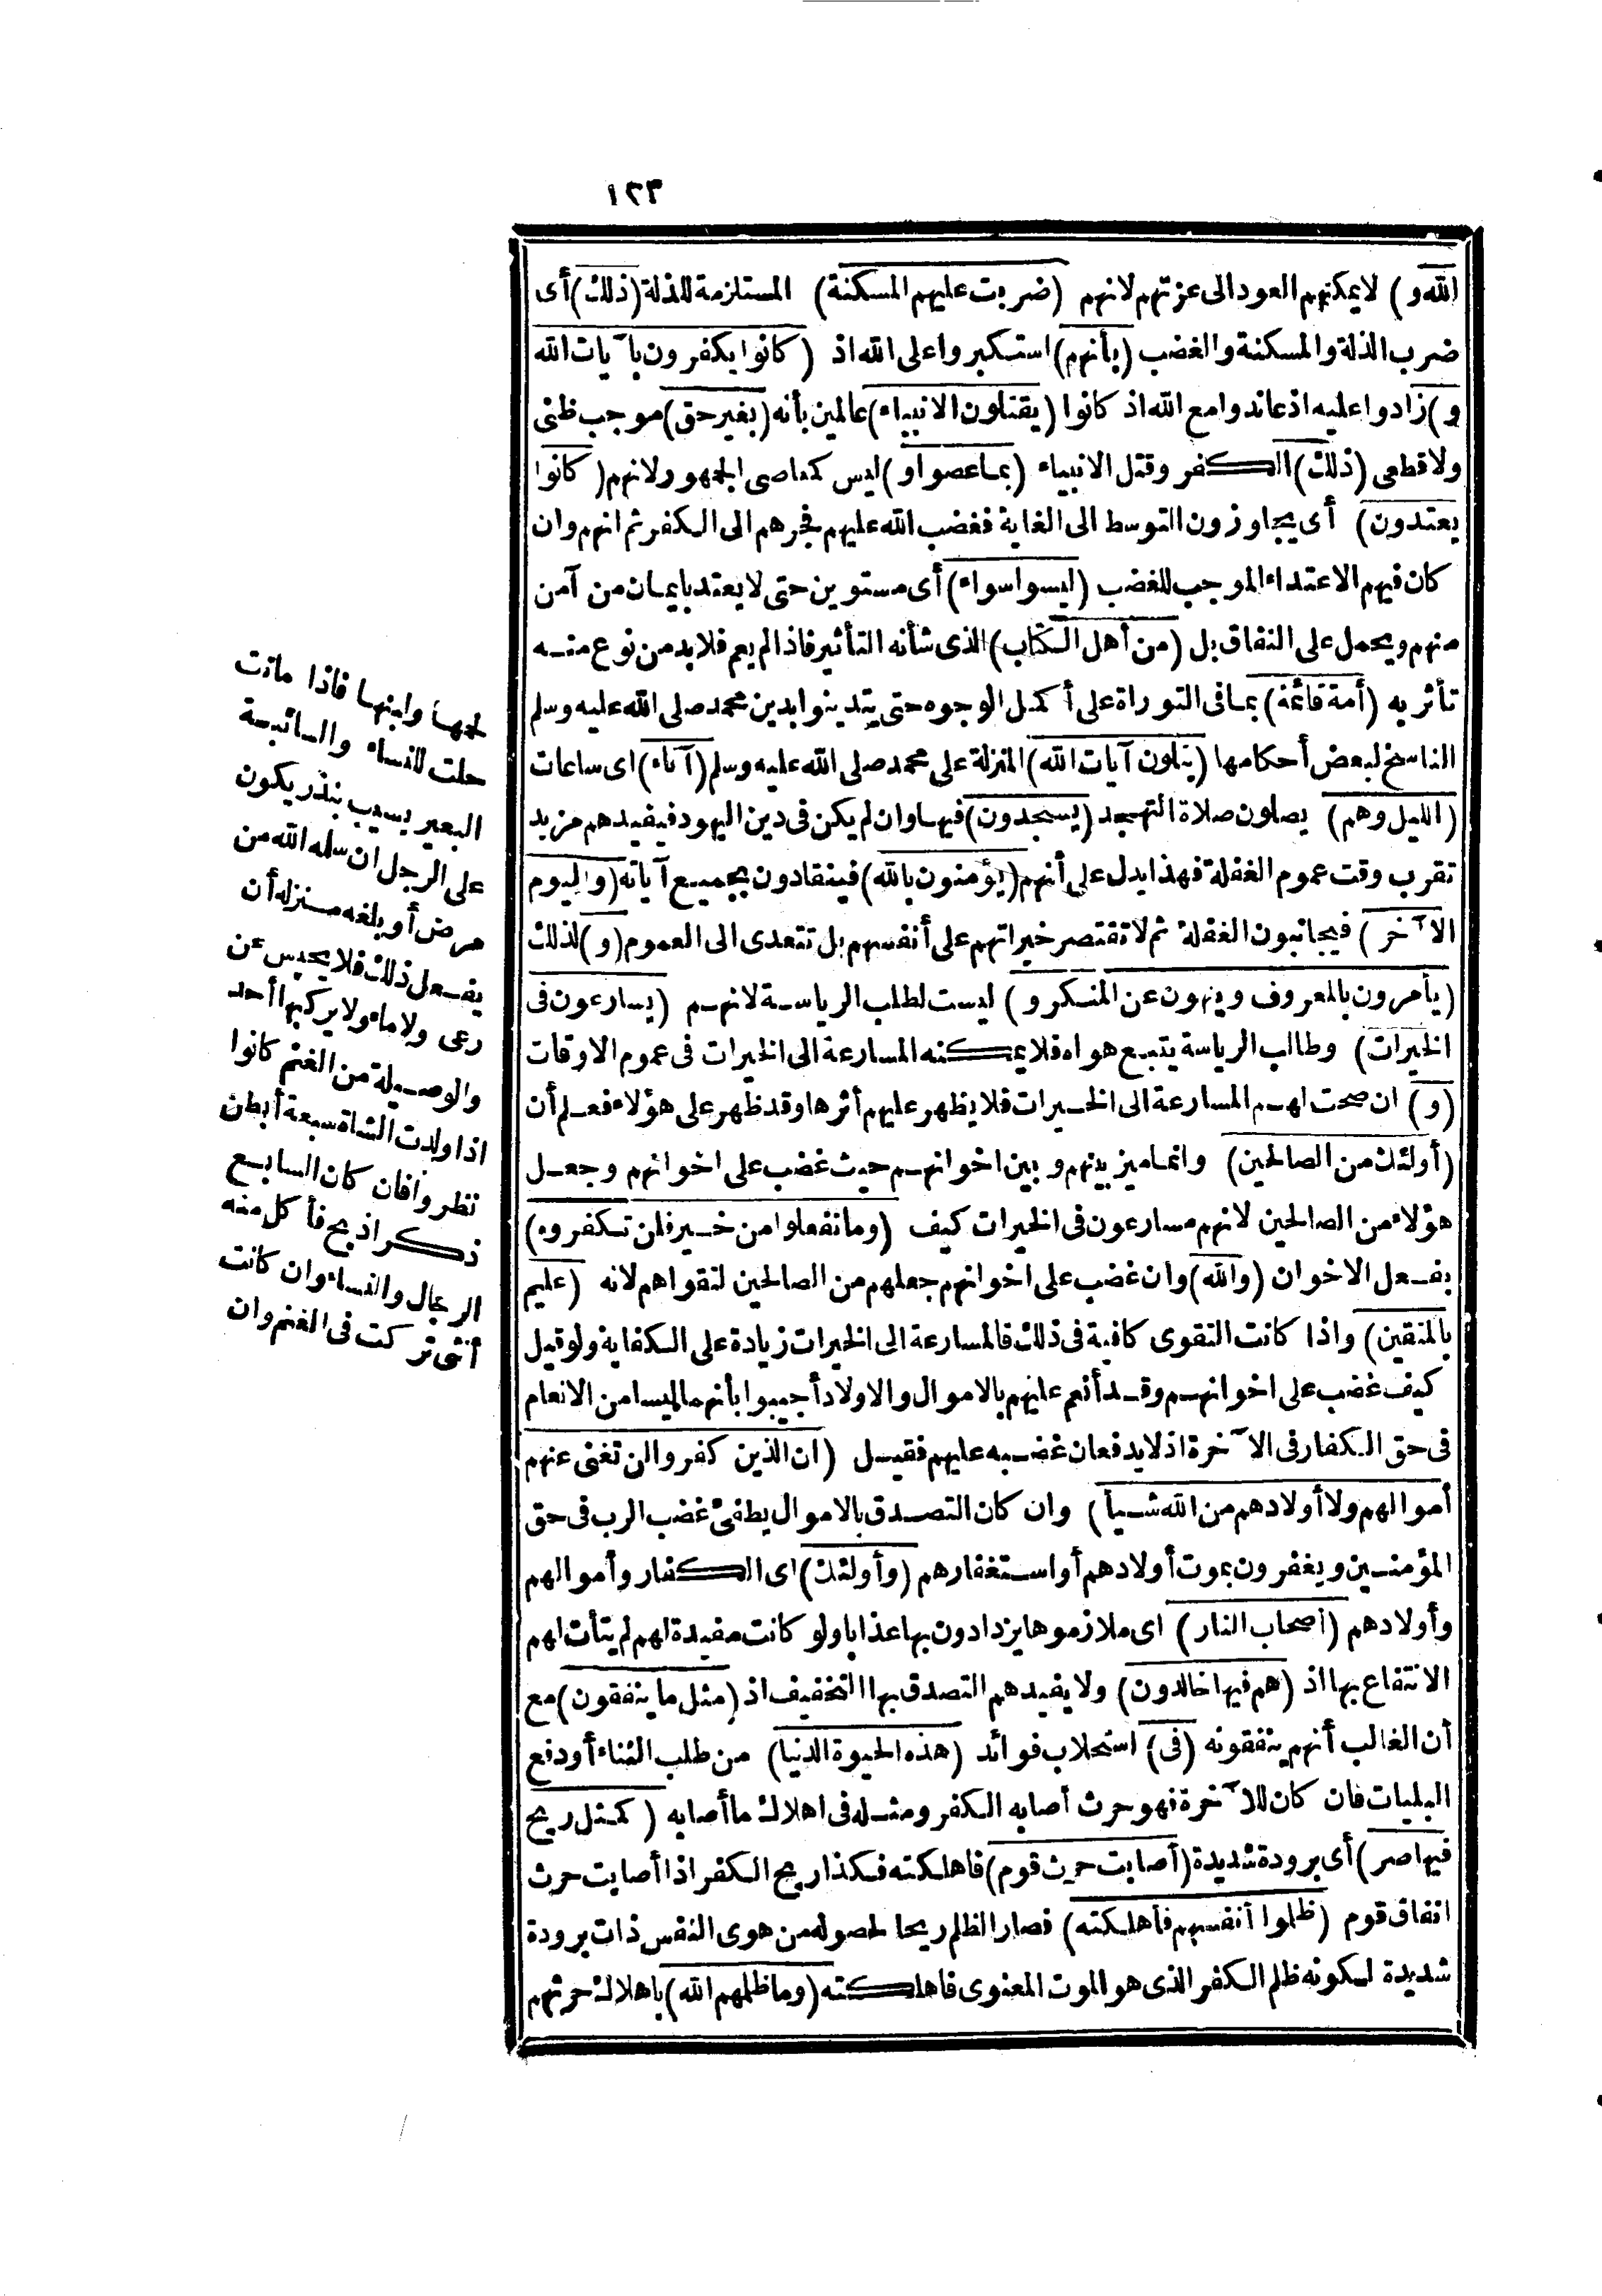 ١٢٣
الله و) لا يمكنهم العود الى عزتهم لانهم (ضربت عليهم المسكنة) المستلزمة للذلة (ذلك) أى
ضرب الذلة والمسكنة والغضب (بأنهم) استكبروا على الله اذ (كانوا يكفرون بآيات الله
و) زادوا عليه اذ عاندوا مع الله اذ كانوا (يقتلون الانبياء) عالمين بأنه (بغير حق) موجب ظنى
ولا قطعى (ذلك) الكفر وقتل الانبياء (بما عصوا و) ليس كمعاصى الجمهور لانهم (كانوا
يعتدون) أى يجاوزون التوسط الى الغاية فغضب الله عليهم فجرهم الى الكفر ثم انهم وان
كان فيهم الاعتداء الموجب للغضب (ليسوا سواء) أى مستوين حتى لا يعتد بايمان من آمن
منهم ويحمل على النفاق بل (من أهل الكتاب) الذى شأنه التأثير فاذا لم يعم فلا بد من نوع منه
تأثر به (أمة قائمة) بما فى التوراة على أكمل الوجوه حتى يتدينوا بدين محمد صلى الله عليه وسلم
الناسخ لبعض أحكامها (يتلون آيات الله) المنزلة على محمد صلى الله عليه وسلم (آناء) اى ساعات
(الليل وهم) يصلون صلاة التهجد (يسجدون) فيها وان لم يكن فى دين اليهود فيفيدهم مزيد
تقرب وقت عموم الغفلة فهذا يدل على أنهم (يؤمنون بالله) فينقادون بجميع آياته (واليوم
الآخر) فيجانبون الغفلة ثم لا تقتصر خيراتهم على أنفسهم بل تتعدى الى العموم (و) لذلك
(يأمرون بالمعروف وينهون عن المنكر و) ليست لطلب الرياسة لانهم (يسارعون فى
الخيرات) وطالب الرياسة يتبع هواه فلا يمكنه المسارعة الى الخيرات فى عموم الاوقات
(و) ان صحت لهم المسارعة الى الخيرات فلا يظهر عليهم أثرها وقد ظهر على هؤلاء فعلم أن
(أولئك من الصالحين) وانما ميز بينهم وبين اخوانهم حيث غضب على اخوانهم وجعل
هؤلاء من الصالحين لانهم مسارعون فى الخيرات كيف (وما تفعلوا من خير فلن تكفروه)
بفعل الاخوان (والله) وان غضب على اخوانهم جعلهم من الصالحين لتقواهم لانه (عليم
بالمتقين) واذا كانت التقوى كافية فى ذلك فالمسارعة الى الخيرات زيادة على الكفاية ولو قيل
كيف غضب على اخوانهم وقد أنعم عليهم بالاموال والاولاد أجيبوا بأنهما ليسا من الانعام
فى حق الكفار فى الآخرة اذ لا يدفعان غضبه عليهم فقيل (ان الذين كفروا لن تغنى عنهم
أموالهم ولا أولادهم من الله شيأ) وان كان التصدق بالاموال يطفئ غضب الرب فى حق
المؤمنين ويغفرون بموت أولادهم أو استغفارهم (وأولئك) اى الكفار وأموالهم
وأولادهم (أصحاب النار) اى ملازموها يزدادون بها عذابا ولو كانت مفيدة لهم لم يتأت لهم
الانتفاع بها اذ (هم فيها خالدون) ولا يفيدهم التصدق بها التخفيف اذ (مثل ما ينفقون) مع
أن الغالب أنهم ينفقونه (فى) استجلاب فوائد (هذه الحيوة الدنيا) من طلب الثناء أو دفع
البليات فان كان للآخرة فهو حرث أصابه الكفر ومثله فى اهلاك ما أصابه (كمثل ريح
فيها صر) أى برودة شديدة (أصابت حرث قوم) فاهلكته فكذا ريح الكفر اذا أصابت حرث
انفاق قوم (ظلموا أنفسهم فأهلكته) فصار الظلم ريحا لحصوله من هوى النفس ذات برودة
شديدة لكونه ظلم الكفر الذى هو الموت المعنوى فاهلكته (وما ظلمهم الله) باهلاك حرثهم
لحمها ولبنها فاذا ماتت
حلت للنساء والسائبة
البعير يسيب بنذر يكون
على الرجل ان سلمه الله من
مرض أو بلغه منزله أن
يفعل ذلك فلا يحبس عن
رعى ولا ماء ولا يركبها أحد
والوصيلة من الغنم كانوا
اذا ولدت الشاة سبعة أبطن
نظروا فان كان السابع
ذكرا ذبح فأكل منه
الرجال والنساء وان كانت
أنثى تركت فى الغنم وان